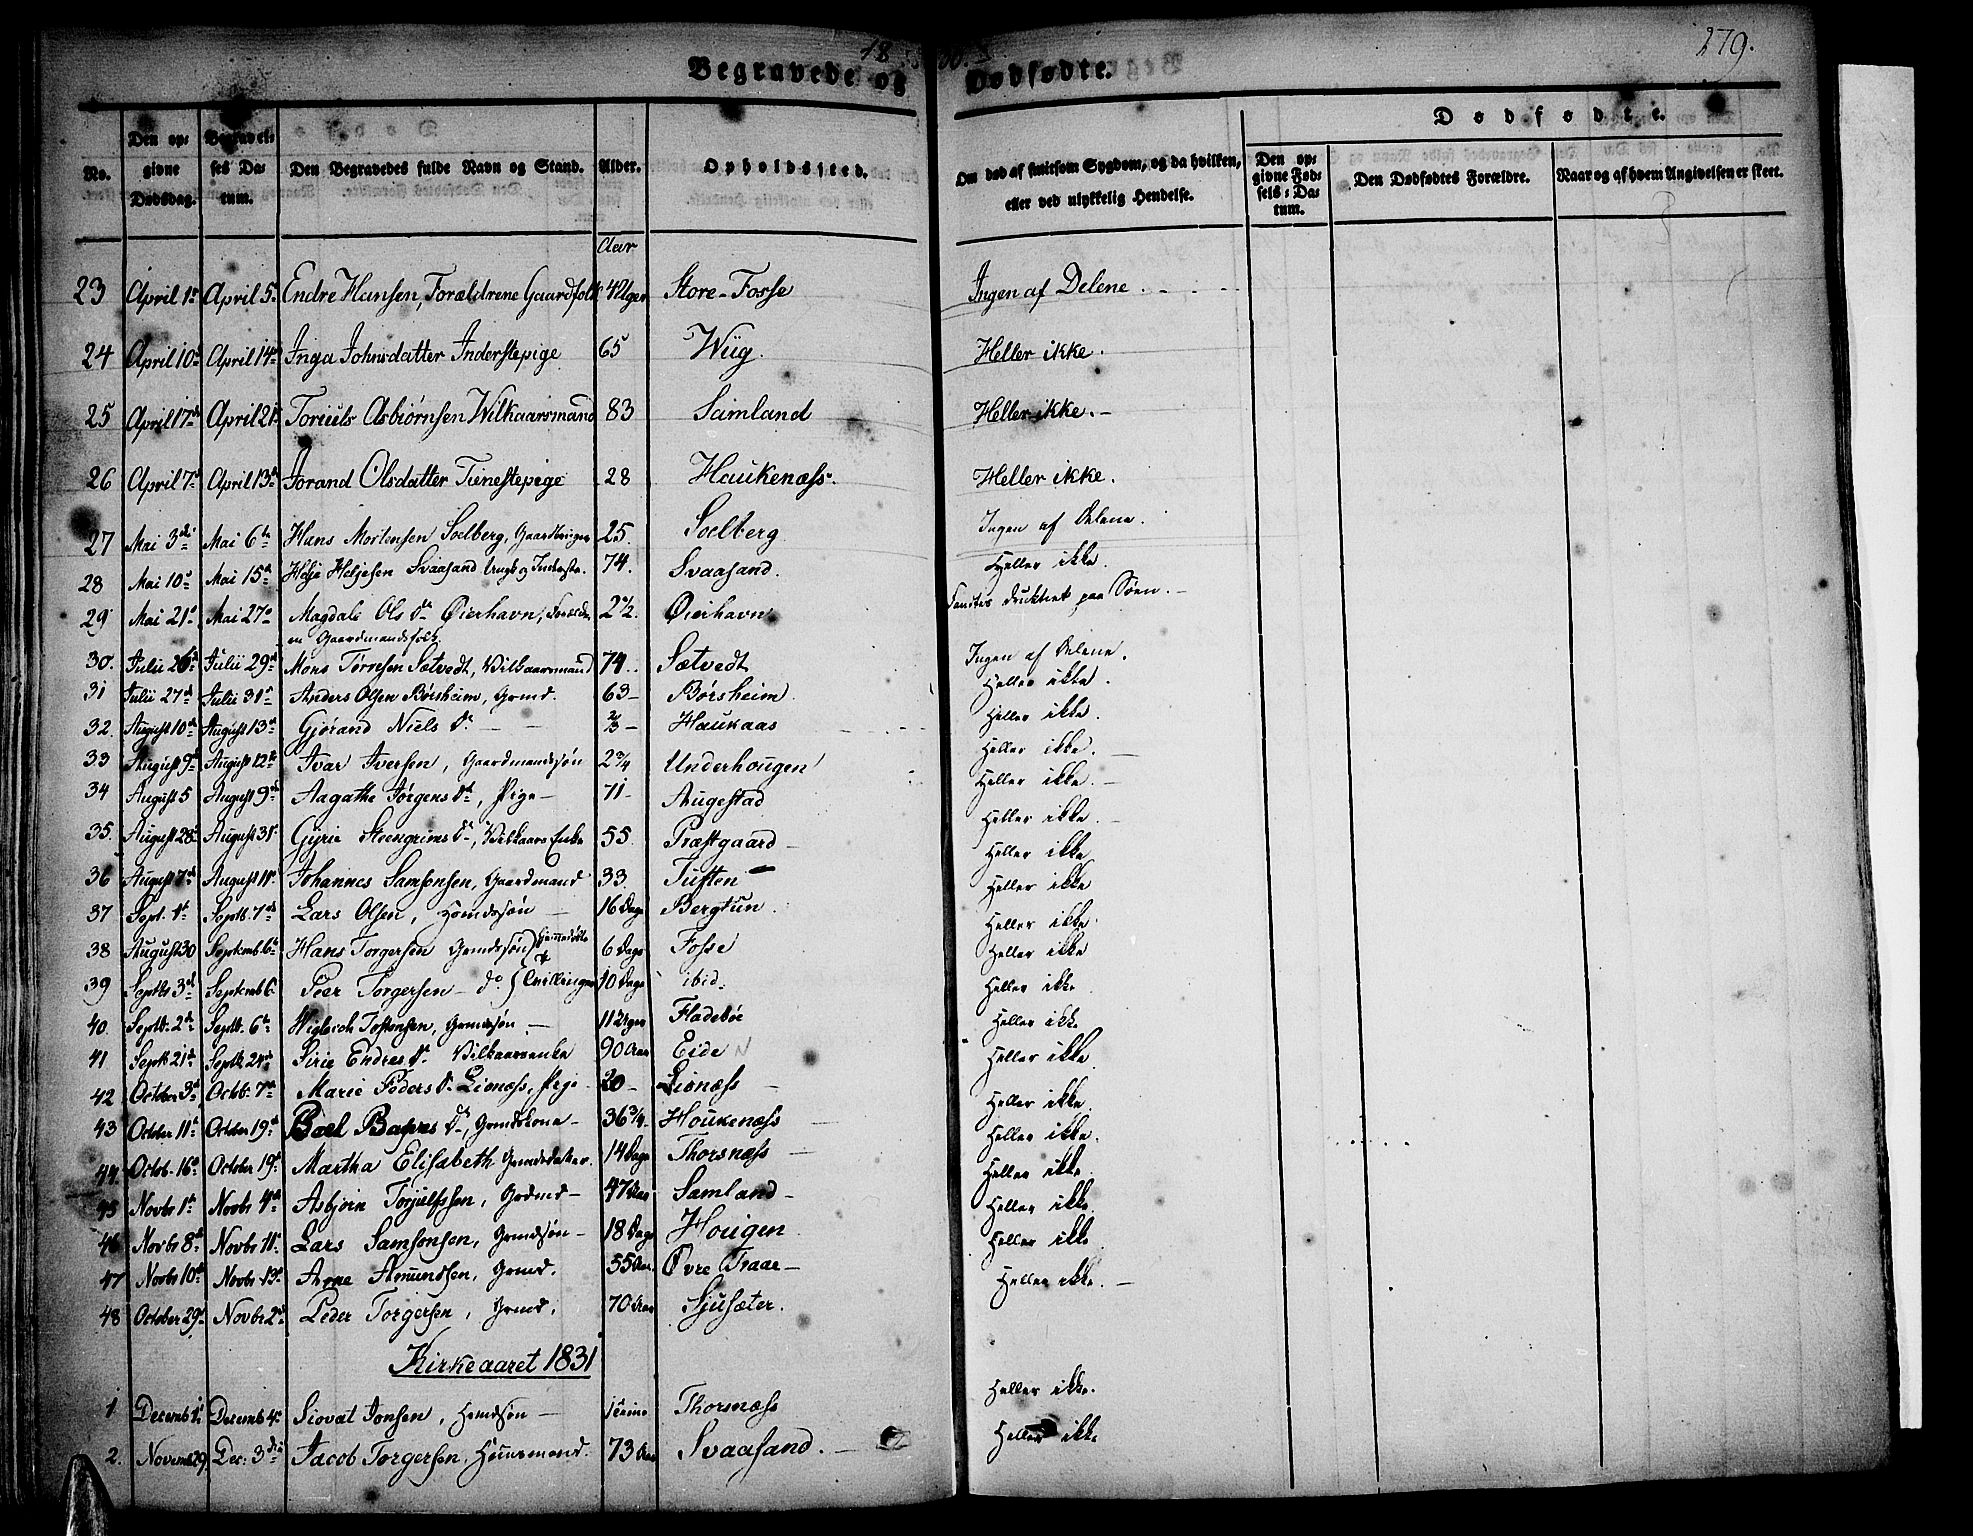 279.
Begravede og Dødfødte.
No.
Den opgivne Dødsdag.
Begravelses Datum.
Den Begravedes fulde Navn og Stand.
Alder.
Opholdssted.
Om død af smitsom Sygdom, og da hvilken, eller ved ulykkelig Hendelse.
Dødfødte.
Den opgivne Fødsels-Datum.
Den Dødfødtes Forældre.
Naar og af hvem Angivelsen er skeet.
Aar
23 April 1st April 5te Endre Hansen, Forældrene Gaardfolk 4 Uger Store-Fosse Ingen af Delene
24 April 10de April 14de Inga Johnsdatter Inderstepige 65 Wiig. Heller ikke.
25 April 17de April 21 Toriuls Asbiørnsen Wilkaarsmand 83 Samland Heller ikke.
26 April 7de April 13de Jorand Olsdatter Tienestepige 28 Haukenæss. Heller ikke.
27 Mai 3die Mai 6te Hans Mortensen Solberg, 25. Solberg Ingen af Delene.
28 Mai 10de Mai 15de Helje Heljesen Svaasand 74. Svaasand. Heller ikke.
29 Mai 21 Mai 27de Magdali Ols Dr Øierhavn, 2 1/2. Øierhavn paa Søen.
en Gaardmandsfolk.
30. Julii 26de Julii 29de Mons Tørresen Sætvedt, Vilkaarsmand 74. Sætvedt Ingen af Delene.
31 Julii 27de Julii 31te Anders Olsen Børsheim, Grmd. 63 Børsheim Heller ikke.
32. August 10de August 13de Gjørand Niels Dr 2/3 Haukaas Heller ikke.
33 August 9de August 12te Ivar Iversen, Gaardmandssøn 2 3/4 Underhougen Heller ikke.
34 August 5 August 9de Aagathe Jørgens Dr, Pige 71 Augestad Heller ikke.
35. August 28de August 31te Gyrie Steengrims Dr, Vilkaars Enke 55 Præstgaard Heller ikke.
36 August 7de August 11te Johannes Samsonsen, Gaardmand 33. Tuften Heller ikke
37 Sept. 1te Septb. 7de Lars Olsen, Hmdssøn 16 Dage Bergtun. Heller ikke
38 August 30 Septemb 6te Hans Torgersen Grmdssøn 6 Dage Fosse Heller ikke.
39 Septb 3de Septemb 6 Peer Torgersen do Tvillinger 10 Dage ibid. Heller ikke
40. Septb. 2de Septb. 6te Tostensen, Grmdssøn 11 Uger Fladebøe Heller ikke
41 Septb 21de Septb 24de Sirie Endres Dr Vilkaarsenke 90 Aar Eide Heller ikke
42 October 3de Octob. 7de Marie Peders Dr Lionæss, Pige 20 Lionæss Heller ikke
43 October 11te October 19de Dr, Grmdskone 36 3/4 Houkenæss Heller ikke
44. Octob. 16de October 19de Martha Elisabeth Grmdsdatter. 14 Dage Thorsnæss Heller ikke.
45 Novbr 1te Novbr 4de Asbjørn Torjulssen, 47 Aar Samland Heller ikke
46 Novbr 8de Novbr 11te Lars Samsonsen, Grmdssøn 18 Dage Hougen Heller ikke
47 Novbr 10de Novbr 13de Arne Amundsen, Grmd. 55 Aar. Øvre Traae Heller ikke
48 October 29de Novbr 2de Peder Torgersen, Grmd. 70 Aar Sjusæter. Heller ikke.
Kirkeaaret 1831
1 Decemb 1te Decemb 4de Siovat Jonsen, Hmdssøn 1 Time Thorsnæss Heller ikke.
2. Novemb 29. Dec: 3die Jacob Torgersen, Huusmand. 73 Aar Svaasand. Heller ikke